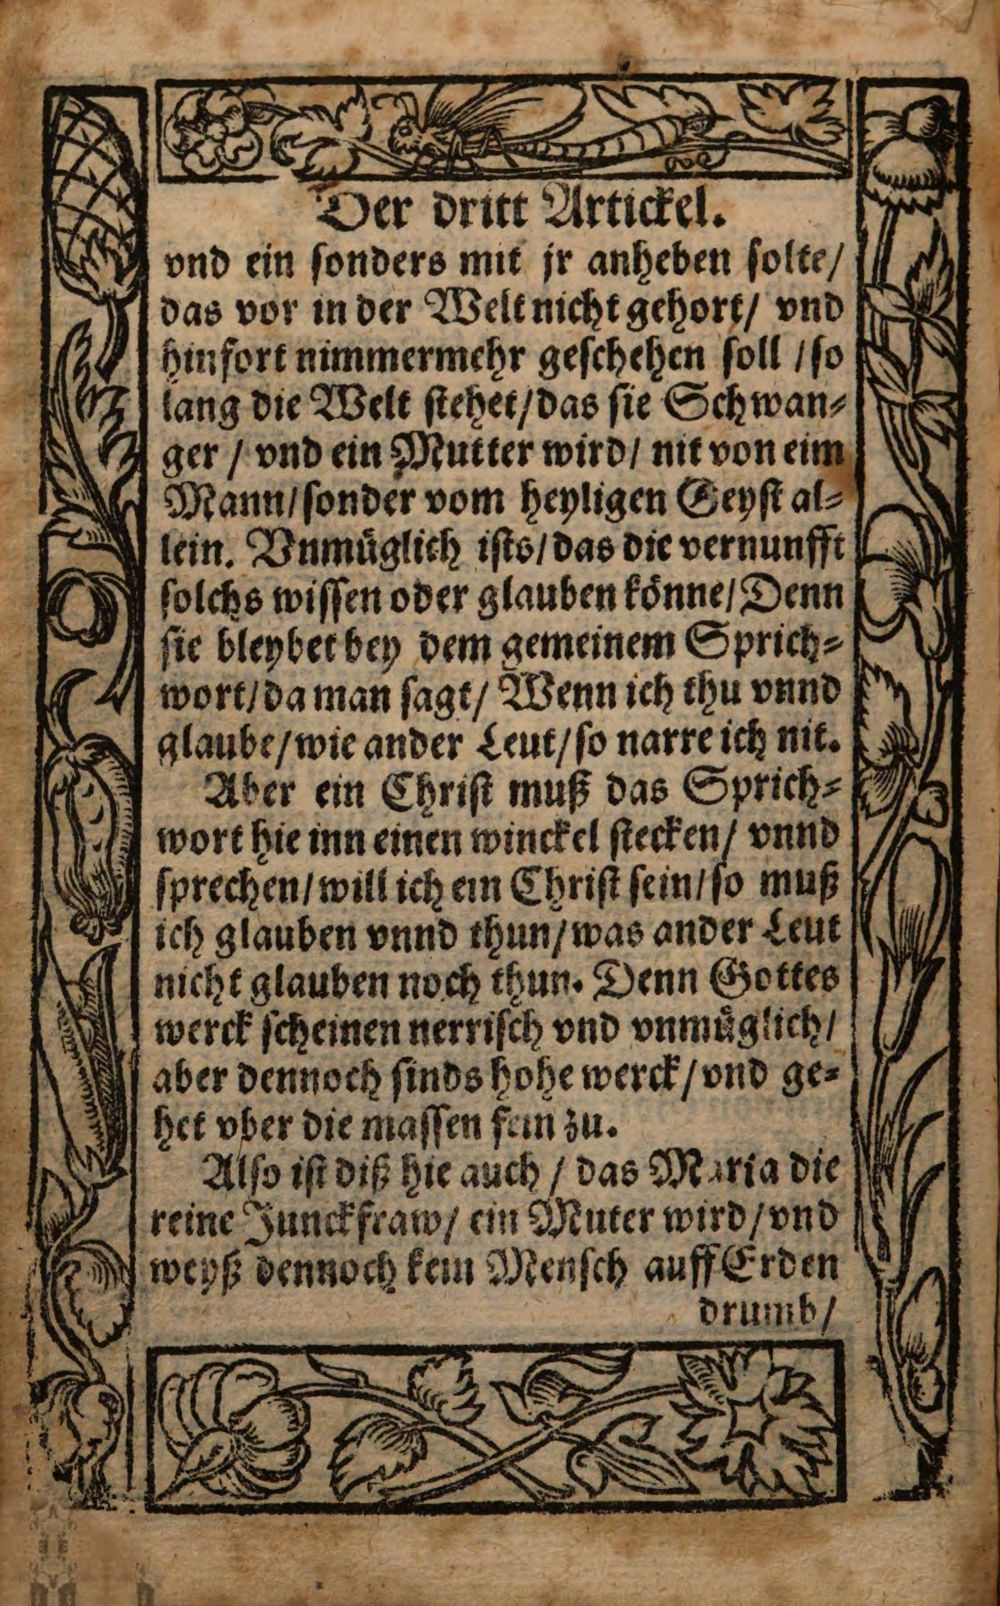 Der dritt Artickel.
vnd ein sonders mit jr anheben solte/
das vor in der Welt nicht gehort/ vnd
hinfort nimmermehr geschehen soll / so
lang die Welt stehet/ das sie Schwan⸗
ger / vnd ein Mutter wird/ nit von eim
Mann/ sonder vom heyligen Geyst al⸗
lein. Vnmüglich ists/ das die vernunfft
solchs wissen oder glauben könne/ Denn
sie bleybet bey dem gemeinem Sprich⸗
wort/ da man sagt/ Wenn ich thu vnnd
glaube/ wie ander Leut/ so narre ich nit.
Aber ein Christ muß das Sprich⸗
wort hie inn einen winckel stecken/ vnnd
sprechen/ will ich ein Christ sein/ so muß
ich glauben vnnd thun/ was ander Leut
nicht glauben noch thun. Denn Gottes
werck scheinen nerrisch vnd vnmüglich/
aber dennoch sinds hohe werck/ vnd ge⸗
het vber die massen fein zu.
Also ist diß hie auch / das Maria die
reine Junckfraw/ ein Muter wird/ vnd
weyß dennoch kein Mensch auff Erden
drumb/